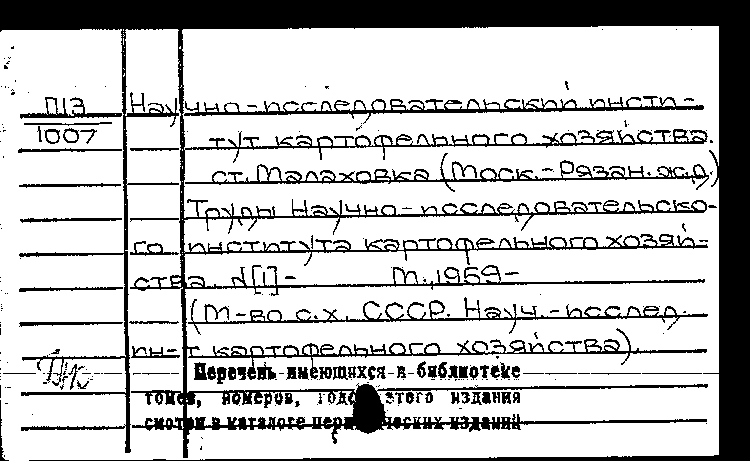 П13 Научно-исследовательский инсти-
1007 тут картофельного хозяйства.
ст. Малаховка (Моск.-Рязан. ж.д.)
Труды Научно-исследовательско-
го института картофельного хозяй-
ства. [1]- М., 1969-
(М-во с.х. СССР. Науч.-исслед.
ин-т картофельного хозяйства).
Перечень имеющихся в библиотеке
томов, номеров, годов этого издания
смотри в каталоге периодических изданий